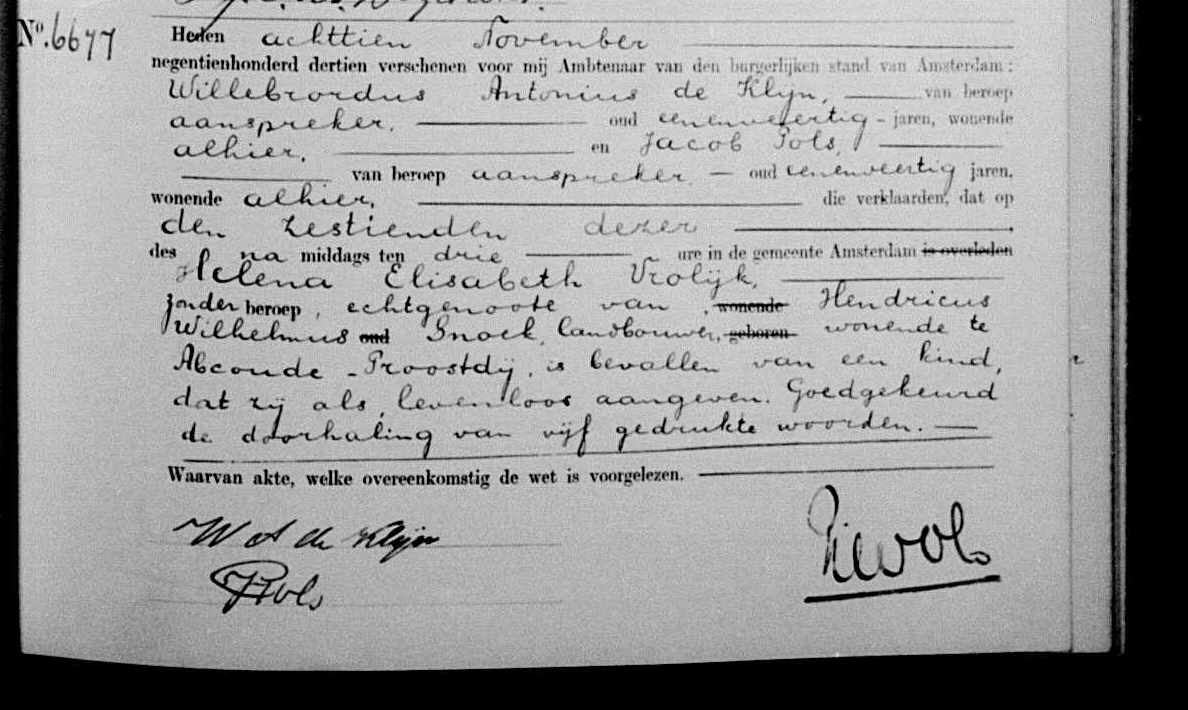 No. 6677
Heden achttien November
negentienhonderd dertien verschenen voor mij Ambtenaar van den burgerlijken stand van Amsterdam:
Willebrordus Antonius de Klijn, van beroep
aanspreker, oud eenenveertig jaren, wonende
alhier, en Jacob Pols,
van beroep aanspreker oud eenenveertig jaren,
wonende alhier, die verklaarden, dat op
den zestienden dezer
des na middags ten drie ure in de gemeente Amsterdam is overleden
Helena Elisabeth Vrolijk,
zonder beroep, echtgenoote van, wonende Hendricus
Wilhelmus oud Snoek, landbouwer, geboren wonende te
Abcoude-Proostdij, is bevallen van een kind,
dat zij als levenloos aangeven. Goedgekeurd
de doorhaling van vijf gedrukte woorden.
Waarvan akte, welke overeenkomstig de wet is voorgelezen.
W A de Klijn
JPols